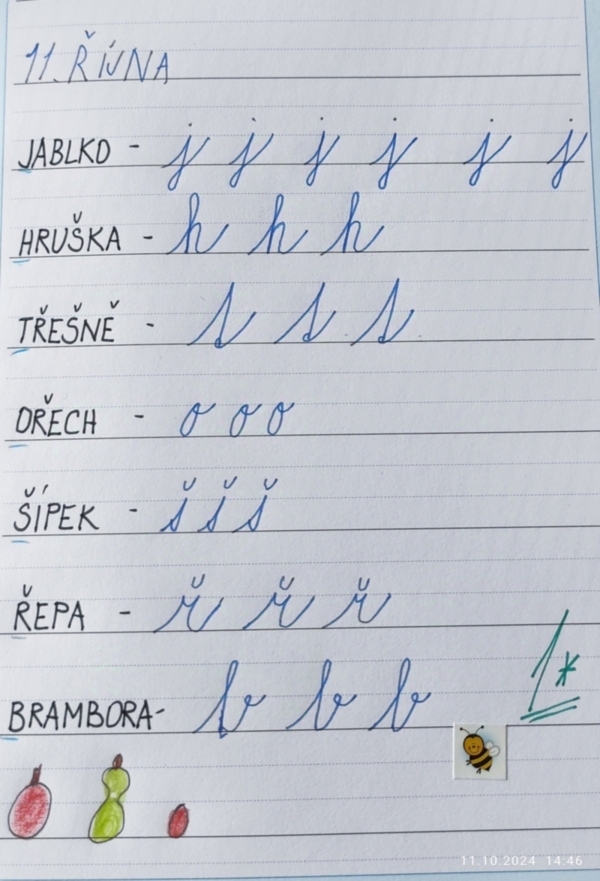 11. ŘÍJNA
JABLKO - j j j j j j
HRUŠKA - h h h
TŘEŠNĚ - t t t
OŘECH - o o o
ŠÍPEK - š š š
ŘEPA - ř ř ř
BRAMBORA- b b b
1*
11.10.2024 14:46